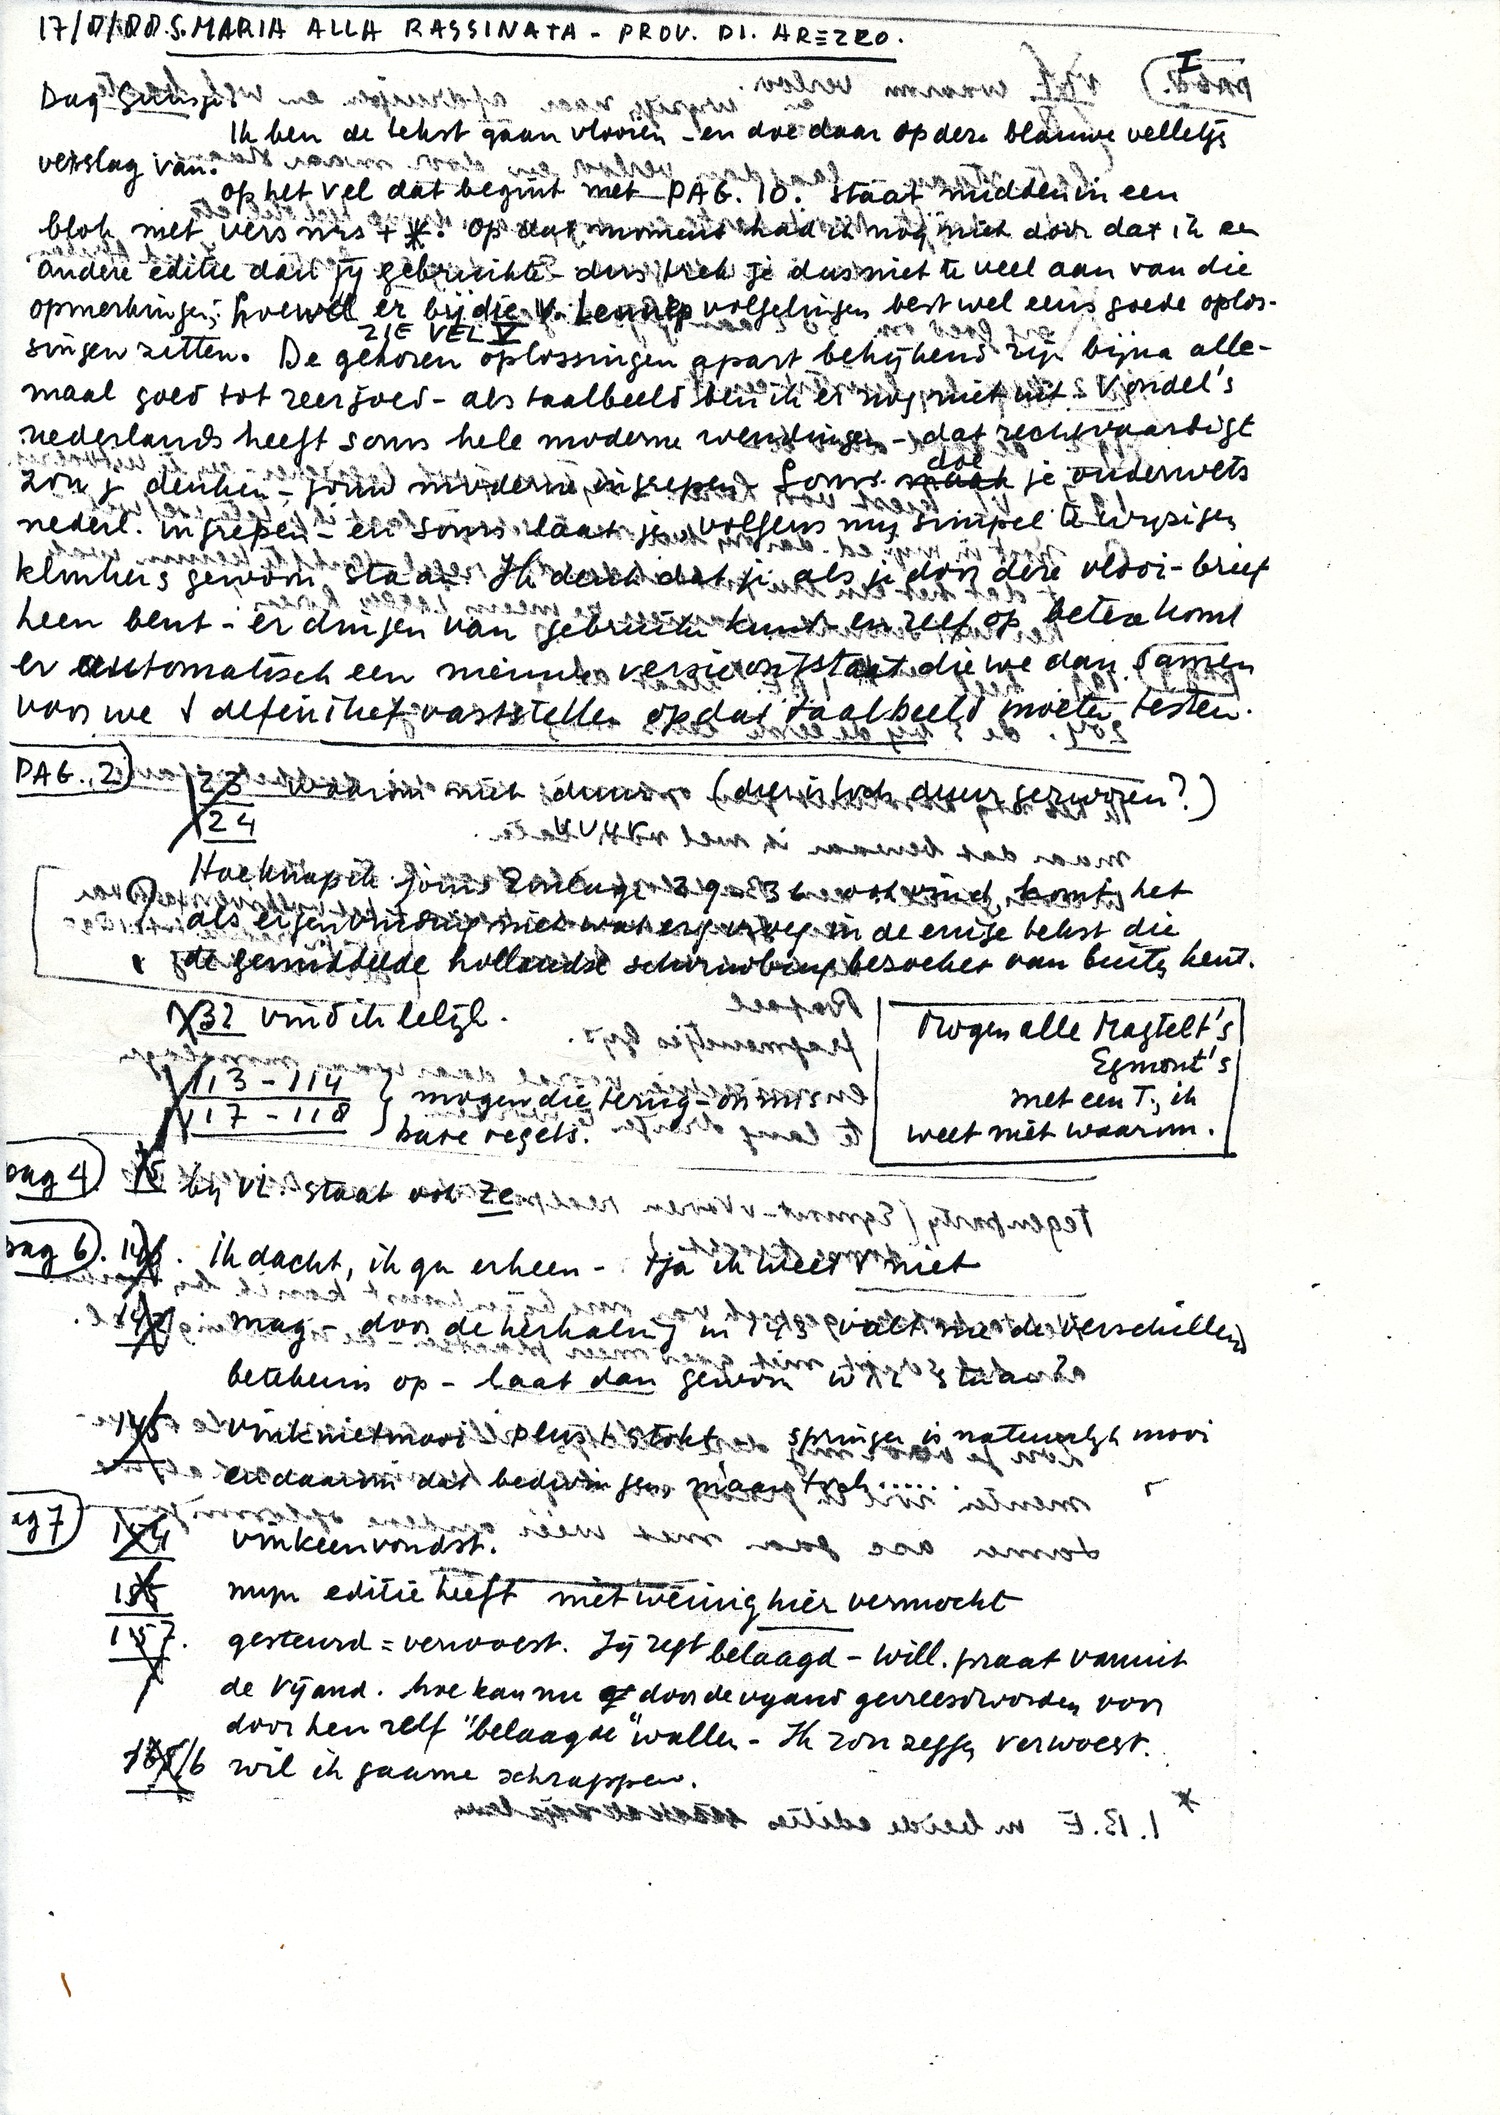 S. MARIA ALLA RASSINATA - PROV. DI. AREZZO.
I
Dag
Ik ben de tekst gaan vlooien - en doe daar op deze blauwe velletjs
verslag van.
op het vel dat begint met PAG. 10. staat midden in een
blok met vers nrs + *. Op dat moment had ik nog niet door dat ik een
andere editie dan jij gebruikte - dus trek je dus niet te veel aan van die
opmerkingen; hoewel er bij die v. Lennep volgelingen best wel eens goede oplos-
ZIE VEL V
singen zitten. De gekozen oplossingen apart bekijkend zijn bijna alle-
maal goed tot zeer goed - als taalbeeld ben ik er nog niet uit. Vondel's
nederlands heeft soms hele moderne wendingen - dat rechtvaardigt
zou j denken - jouw moderne ingrepen. Soms doe je ouderwets
nederl. ingrepen - en soms laat je volgens mij simpel te wijzigen
klinkers gewoon staan. Ik denk dat je als je door deze vlooi-brief
heen bent - er dingen van gebruiken kunt en zelf op betere komt
er automatisch een nieuwe versie ontstaat die we dan samen
voor we 't definitief vaststellen op dat taalbeeld moeten testen.
PAG. 2
23 waarom niet duur (duer is toch duur gezworen?)
24
Hoe knap ik jouw 29 3 ook vind, komt het
als eigen vinding niet wat erg vroeg in de enige tekst die
de gemiddelde hollandse schouwburg bezoeker van buiten kent.
32 vind ik lelijk.
113 - 114
117 - 118 } mogen die terug - onmis
bare regels.
Mogen alle Magtelt's
Egmont's
met een T, ik
weet niet waarom.
pag 4 15 bij VL. staat ook ze
pag 6. ik dacht, ik ga erheen - tja ik weet 't niet
142 mag - door de herhaling in 143 valt me de verschillend
betekenis op - laat dan gewoon staan?
145 vink niet mooi plus 't stokt springen is natuurlijk mooi
en daarom dat bedwingen, maar toch ......
pag 7
154 vink een vondst.
155 mijn editie heeft niet weinig hier vermocht
157. gesteurd = verwoest. Jij zegt belaagd - Will. praat vanuit
de vijand. hoe kan nu door de vijand gevreesd worden voor
door hen zelf "belaagde" wallen - Ik zou zeggen verwoest.
165/6 wil ik gaarne schrappen.